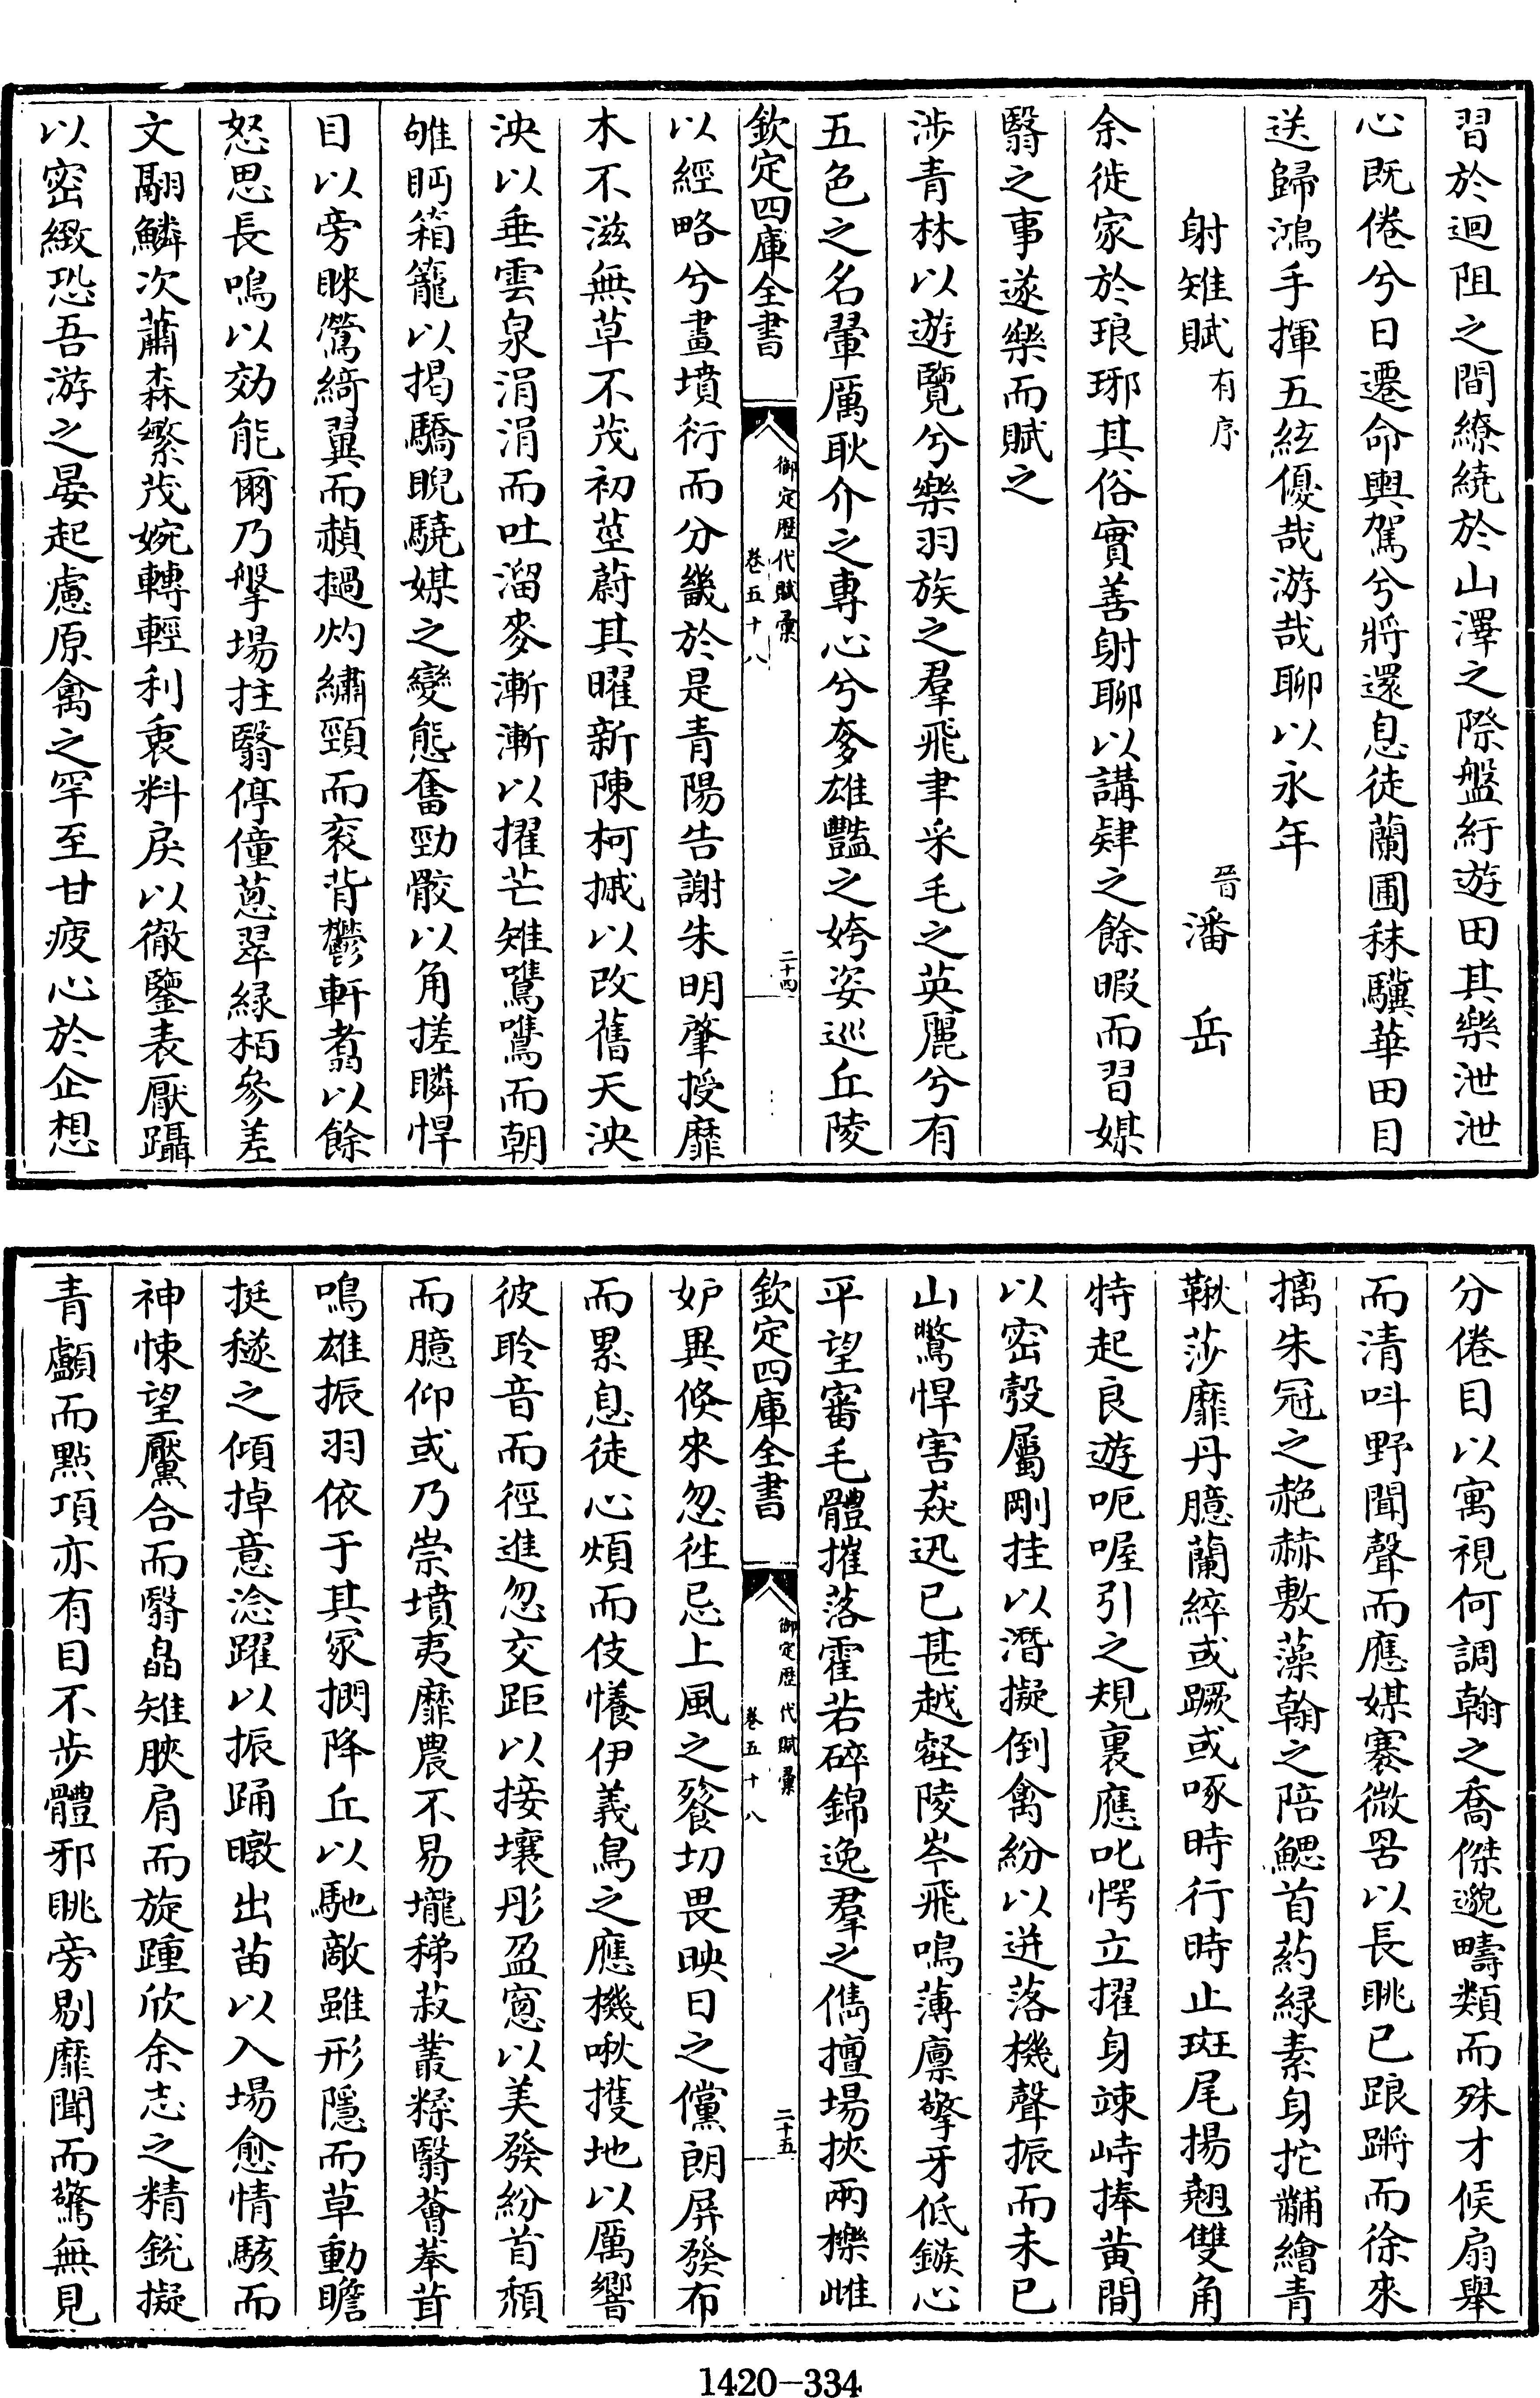 習於迴阻之間繚繞於山澤之際盤紆遊田其樂泄泄
心既倦兮日遷命輿駕兮將還息徒蘭圃秣驥華田目
送歸鴻手揮五絃優哉游哉聊以永年
射雉賦有序 晉潘岳
余徙家於琅琊其俗實善射聊以講肄之餘暇而習媒
翳之事遂樂而賦之
涉青林以遊覽兮樂羽族之羣飛聿采毛之英麗兮有
五色之名翬厲耿介之專心兮奓雄豔之姱姿巡丘陵
欽定四庫全書 御定歷代賦彙 卷五十八 二十四
以經略兮畫墳衍而分畿於是青陽告謝朱明肇授靡
木不滋無草不茂初莖蔚其曜新陳柯槭以改舊天泱
泱以垂雲泉涓涓而吐溜麥漸漸以擢芒雉鷕鷕而朝
雊眄箱籠以揭驕睨驍媒之變態奮勁骹以角搓瞵悍
目以旁睞鶯綺翼而赬撾灼繡頸而衮背鬱軒翥以餘
怒思長鳴以効能爾乃摮場拄翳停僮蔥翠緑栢參差
文翮鱗次蕭森繁茂婉轉輕利衷料戾以徹鑒表厭躡
以密緻恐吾游之晏起慮原禽之罕至甘疲心於企想
分倦目以寓視何調翰之喬傑邈疇類而殊才候扇舉
而清呌野聞聲而應媒褰微罟以長眺已踉蹡而徐來
摛朱冠之赩赫敷藻翰之陪鰓首葯緑素身拕黼繪青
鞦莎靡丹臆蘭綷或蹶或啄時行時止斑尾揚翹雙角
特起良遊呃喔引之規裏應叱愕立擢身竦峙捧黃間
以密彀屬剛挂以潛擬倒禽紛以迸落機聲振而未已
山鷩悍害猋迅已甚越壑陵岑飛鳴薄廪擎牙低鏃心
平望審毛體摧落霍若碎錦逸羣之儁擅場挾兩櫟雌
欽定四庫全書 御定歷代賦彙 卷五十八 二十五
妒異倏來忽往忌上風之餮切畏映日之儻朗屏發布
而累息徒心煩而伎懩伊義鳥之應機啾擭地以厲響
彼聆音而徑進忽交距以接壤彤盈窻以美發紛首頹
而臆仰或乃崇墳夷靡農不易壠稊菽叢糅翳薈菶茸
鳴雄振羽依于其冢捫降丘以馳敵雖形隱而草動瞻
挺穟之傾掉意淰躍以振踊暾出苗以入場愈情駭而
神悚望黶合而翳晶雉脥肩而旋踵欣余志之精銳擬
青顱而點項亦有目不步體邪眺旁剔靡聞而驚無見
1420-334